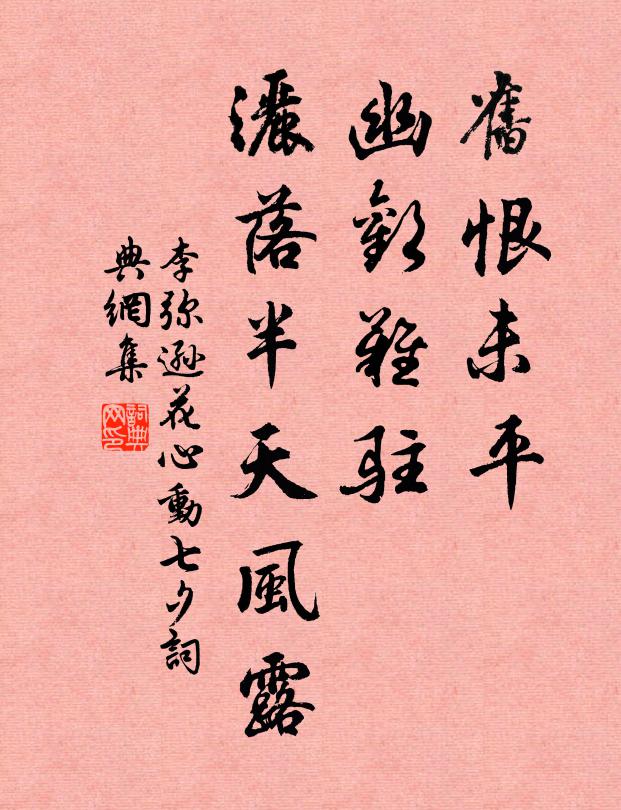 舊恨未平
幽歡難駐
灑落半天風露
李弥遜花心動七夕詞
典網集
詞典網印